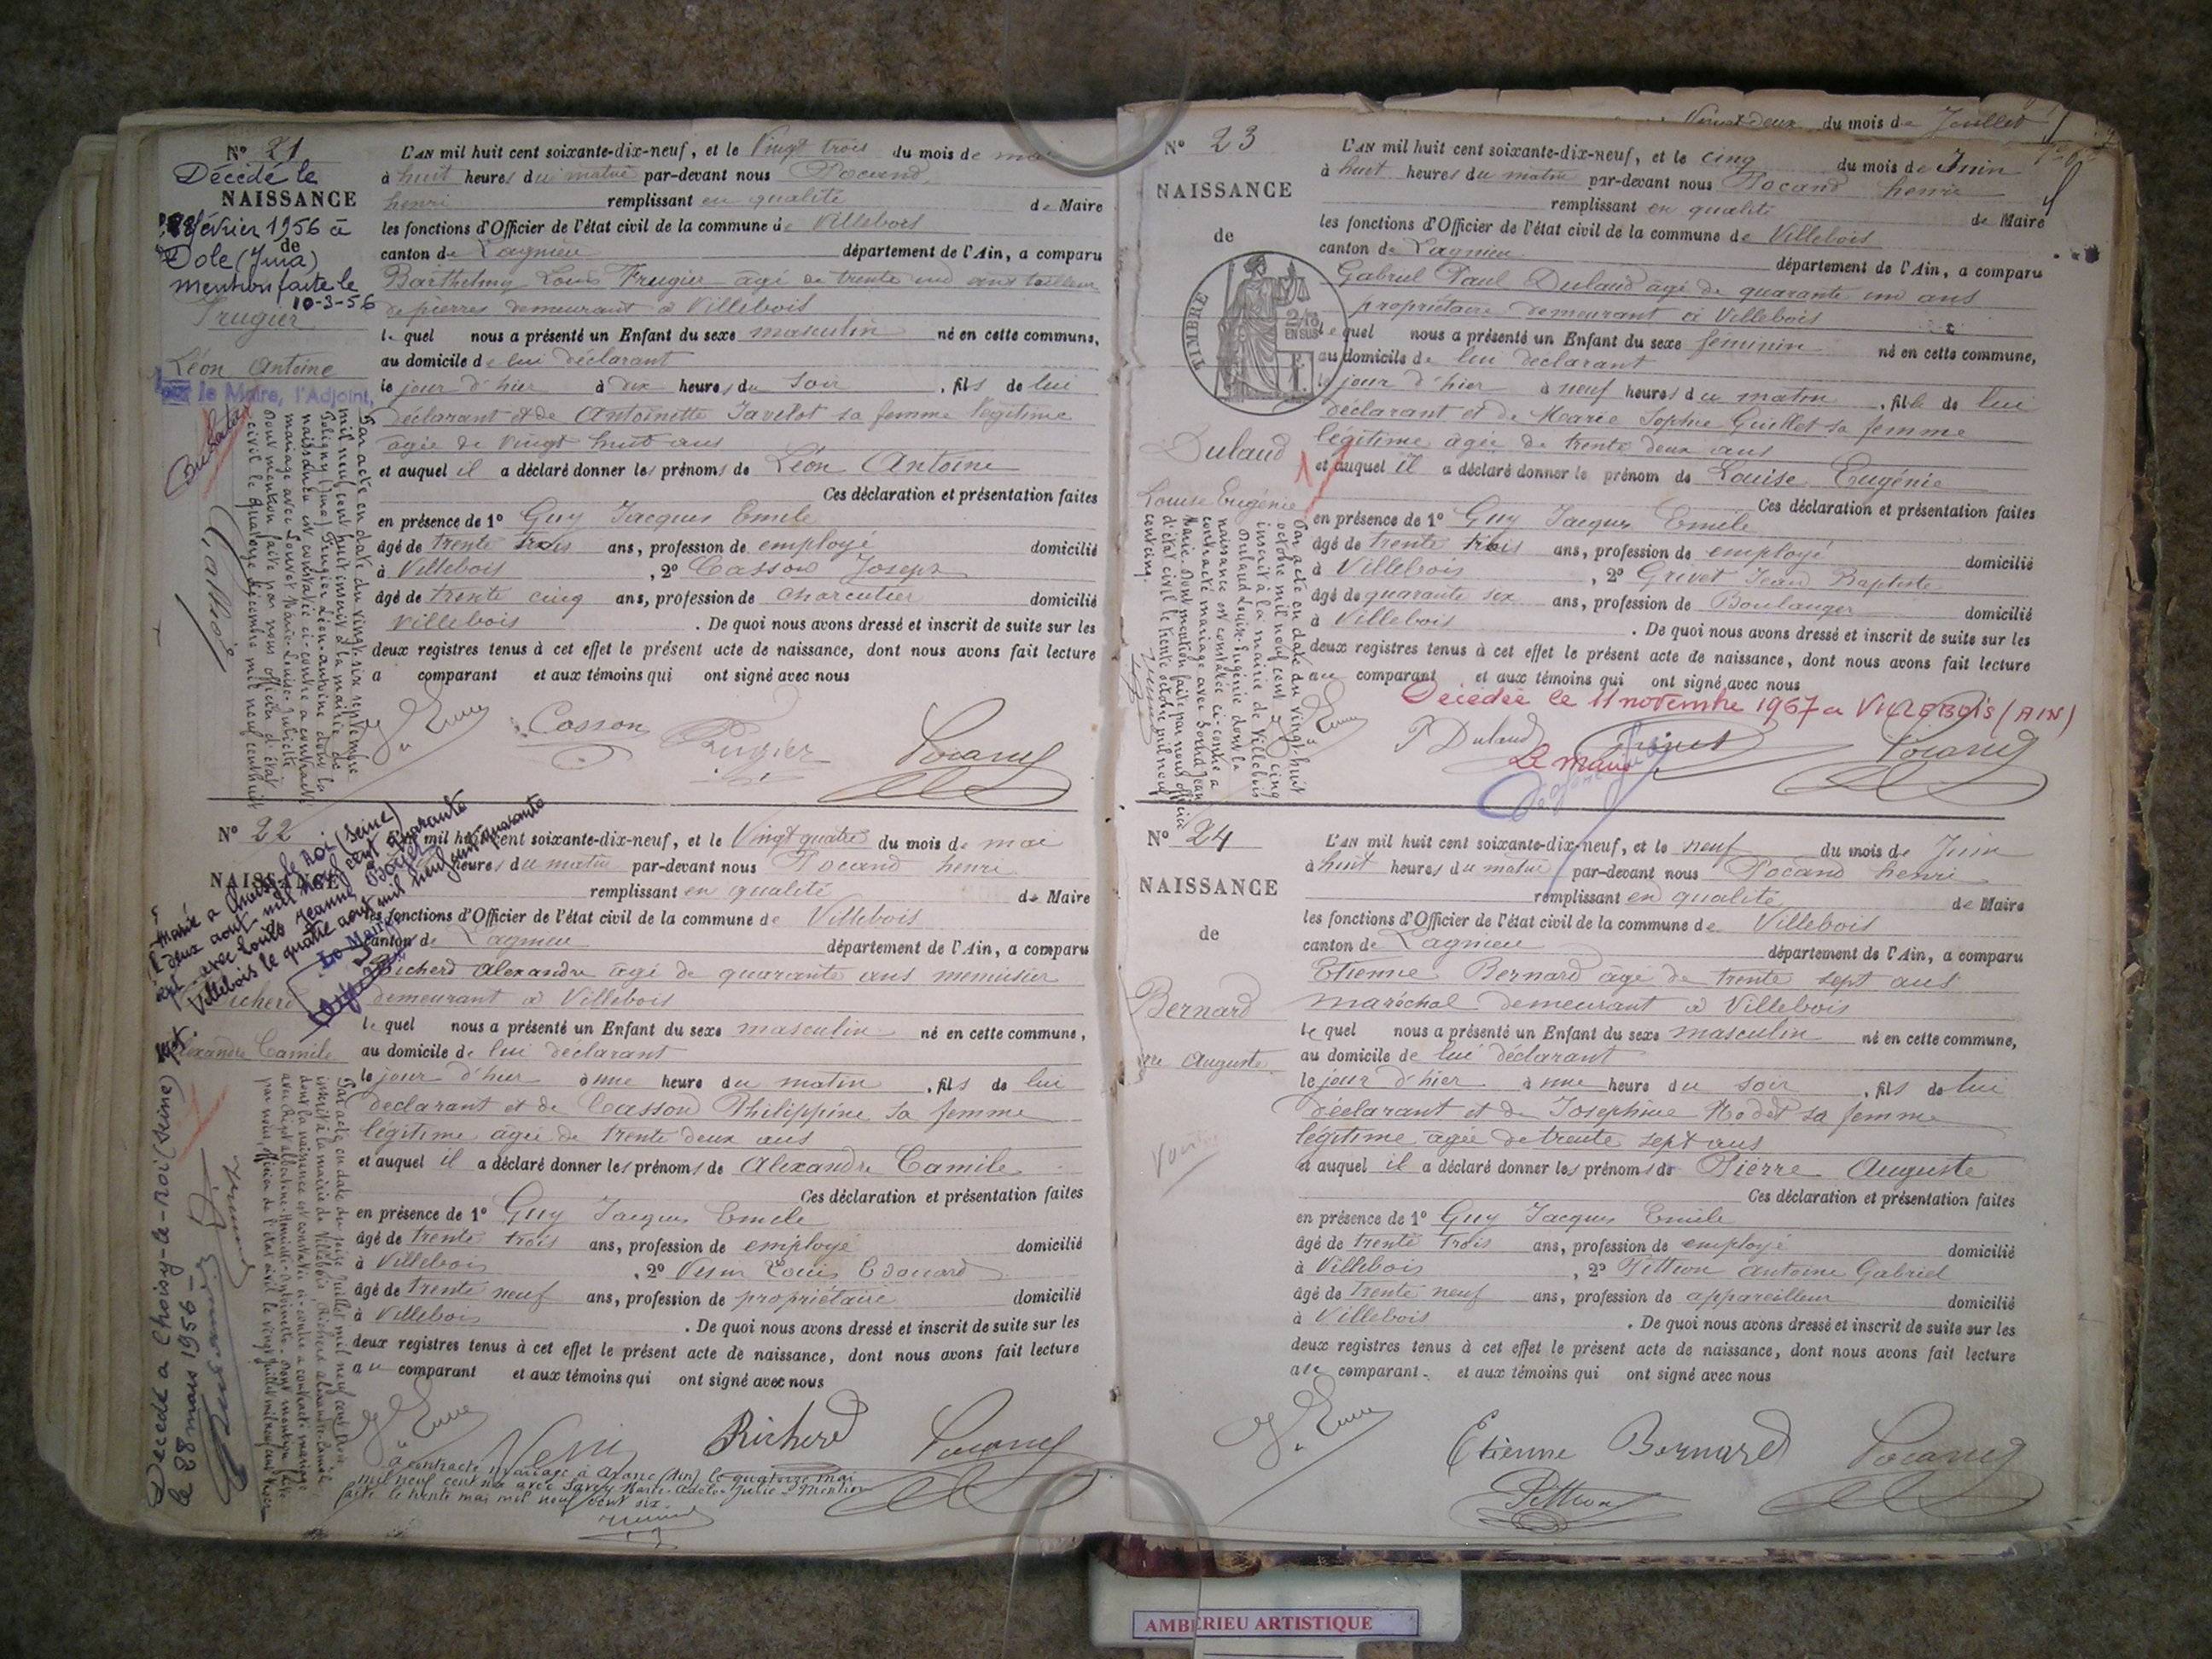 Nº 21
Décédé le
NAISSANCE
février 1956 à
de
Dole (Jura)
mention faite le
10-3-56
Frugier
Léon Antoine
le Maire, l'Adjoint,
L'AN mil huit cent soixante-dix-neuf, et le Vingt trois du mois de mai
à huit heures du matin par-devant nous Pocand
henri remplissant en qualité de Maire
les fonctions d'Officier de l'état civil de la commune de Villebois
canton de Lagnieu département de l'Ain, a comparu
Barthelmy Louis Frugier agé de trente un ans tailleur
de pierres demeurant à Villebois
le quel nous a présenté un Enfant du sexe masculin né en cette commune,
au domicile de lui déclarant
le jour d'hier à dix heures du soir, fils de lui
déclarant et de Antoinette Javelot sa femme légitime
agée de vingt huit ans
et auquel il a déclaré donner les prénoms de Léon Antoine
Ces déclaration et présentation faites
en présence de 1º Guy Jacques Emile
âgé de trente trois ans, profession de employé domicilié
à Villebois, 2º Casson Joseph
âgé de trente cinq ans, profession de charcutier domicilié
Villebois. De quoi nous avons dressé et inscrit de suite sur les
deux registres tenus à cet effet le présent acte de naissance, dont nous avons fait lecture
a comparant et aux témoins qui ont signé avec nous
Par acte en date du vingt-six septembre
mil neuf cent huit inscrit à la mairie de
Poligny (Jura) Frugier Léon-antoine dont la
naissance est constatée ci-contre a contracté
mariage avec Louvet Marie-Louise-Juliette
Dont mention faite par nous officier d'état
civil le quatorze décembre mil neuf cent huit
Casson
Frugier
Nº 22
NAISSANCE
Marié à Choisy le Roi (Seine)
deux aout mil neuf cent quarante
avec Jeanne
Villebois le quatre aout mil neuf cent quarante
Le Maire
Richerd
Alexandre Camile
L'AN mil huit cent soixante-dix-neuf, et le Vingt quatre du mois de mai
heures du matin par-devant nous Pocand henri
remplissant en qualité de Maire
les fonctions d'Officier de l'état civil de la commune de Villebois
canton de Lagnieu département de l'Ain, a comparu
Richerd Alexandre âgé de quarante ans menuisier
demeurant à Villebois
le quel nous a présenté un Enfant du sexe masculin né en cette commune,
au domicile de lui déclarant
le jour d'hier à une heure du matin, fils de lui
déclarant et de Casson Philippine sa femme
légitime âgée de trente deux ans
et auquel il a déclaré donner les prénoms de Alexandre Camile
Ces déclaration et présentation faites
en présence de 1º Guy Jacques Emile
âgé de trente trois ans, profession de employé domicilié
à Villebois, 2º Louis Edouard
âgé de trente neuf ans, profession de propriétaire domicilié
à Villebois. De quoi nous avons dressé et inscrit de suite sur les
deux registres tenus à cet effet le présent acte de naissance, dont nous avons fait lecture
au comparant et aux témoins qui ont signé avec nous
Décédé à Choisy-le-Roi (Seine)
le 28 mars 1956
Richerd
a contracté mariage à (Ain) le quatorze mai
mil neuf cent six avec Marie-Adèle-Julie - Mention
faite le trente mai mil neuf cent six.
Vingt deux du mois de Juillet
Nº 23
NAISSANCE
de
TIMBRE
2/10 EN SUS
Dulaud
Louise Eugénie
L'AN mil huit cent soixante-dix-neuf, et le cinq du mois de Juin
à huit heures du matin par-devant nous Pocand henri
remplissant en qualité de Maire
les fonctions d'Officier de l'état civil de la commune de Villebois
canton de Lagnieu département de l'Ain, a comparu
Gabriel Paul Dulaud agé de quarante un ans
propriétaire demeurant à Villebois
le quel nous a présenté un Enfant du sexe feminin né en cette commune,
au domicile de lui déclarant
le jour d'hier à neuf heures du matin, fille de lui
déclarant et de Marie Sophie Guillet sa femme
légitime âgée de trente deux ans
et auquel il a déclaré donner le prénom de Louise Eugénie
Ces déclaration et présentation faites
en présence de 1º Guy Jacques Emile
âgé de trente trois ans, profession de employé domicilié
à Villebois, 2º Grivet Jean Baptiste
âgé de quarante six ans, profession de Boulanger domicilié
à Villebois. De quoi nous avons dressé et inscrit de suite sur les
deux registres tenus à cet effet le présent acte de naissance, dont nous avons fait lecture
au comparant et aux témoins qui ont signé avec nous
Par acte en date du vingt-huit
octobre mil neuf cent cinq
inscrit à la mairie de Villebois
Dulaud Louise-Eugénie dont la
naissance est constatée ci-contre a
contracté mariage avec Jean
Marie. Dont mention faite par nous officier
d'état civil le trente octobre mil neuf
cent cinq.
Décédée le 11 novembre 1967 a VILLEBOIS (AIN)
P Dulaud
Grivet
Le maire
Nº 24
NAISSANCE
de
Bernard
Auguste
L'AN mil huit cent soixante-dix-neuf, et le neuf du mois de Juin
à huit heures du matin par-devant nous Pocand henri
remplissant en qualité de Maire
les fonctions d'Officier de l'état civil de la commune de Villebois
canton de Lagnieu département de l'Ain, a comparu
Etienne Bernard âgé de trente sept ans
maréchal demeurant à Villebois
le quel nous a présenté un Enfant du sexe masculin né en cette commune,
au domicile de lui déclarant
le jour d'hier à une heure du soir, fils de lui
déclarant et de Josephine Rodet sa femme
légitime âgée de trente sept ans
et auquel il a déclaré donner les prénoms de Pierre Auguste
Ces déclaration et présentation faites
en présence de 1º Guy Jacques Emile
âgé de trente trois ans, profession de employé domicilié
à Villebois, 2º Pittion Antoine Gabriel
âgé de trente neuf ans, profession de appareilleur domicilié
à Villebois. De quoi nous avons dressé et inscrit de suite sur les
deux registres tenus à cet effet le présent acte de naissance, dont nous avons fait lecture
au comparant. et aux témoins qui ont signé avec nous
Etienne Bernard
Pittion
AMBERIEU ARTISTIQUE